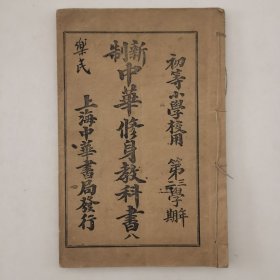 初等小學校用 第三學年
期
新制中華修身教科書 八
上海中華書局發行
樂民